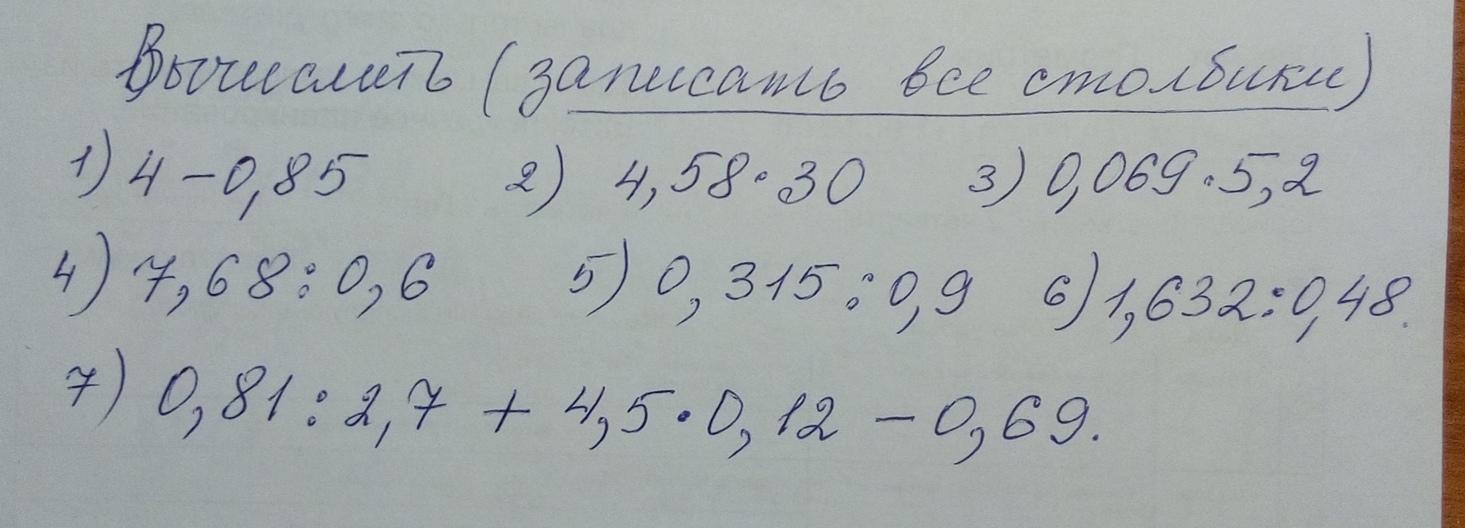 Вычислить (записать все столбики)
1) 4 - 0,85 2) 4,58 · 30 3) 0,069 · 5,2
4) 7,68 : 0,6 5) 0,315 : 0,9 6) 1,632 : 0,48.
7) 0,81 : 2,7 + 4,5 · 0,12 - 0,69.